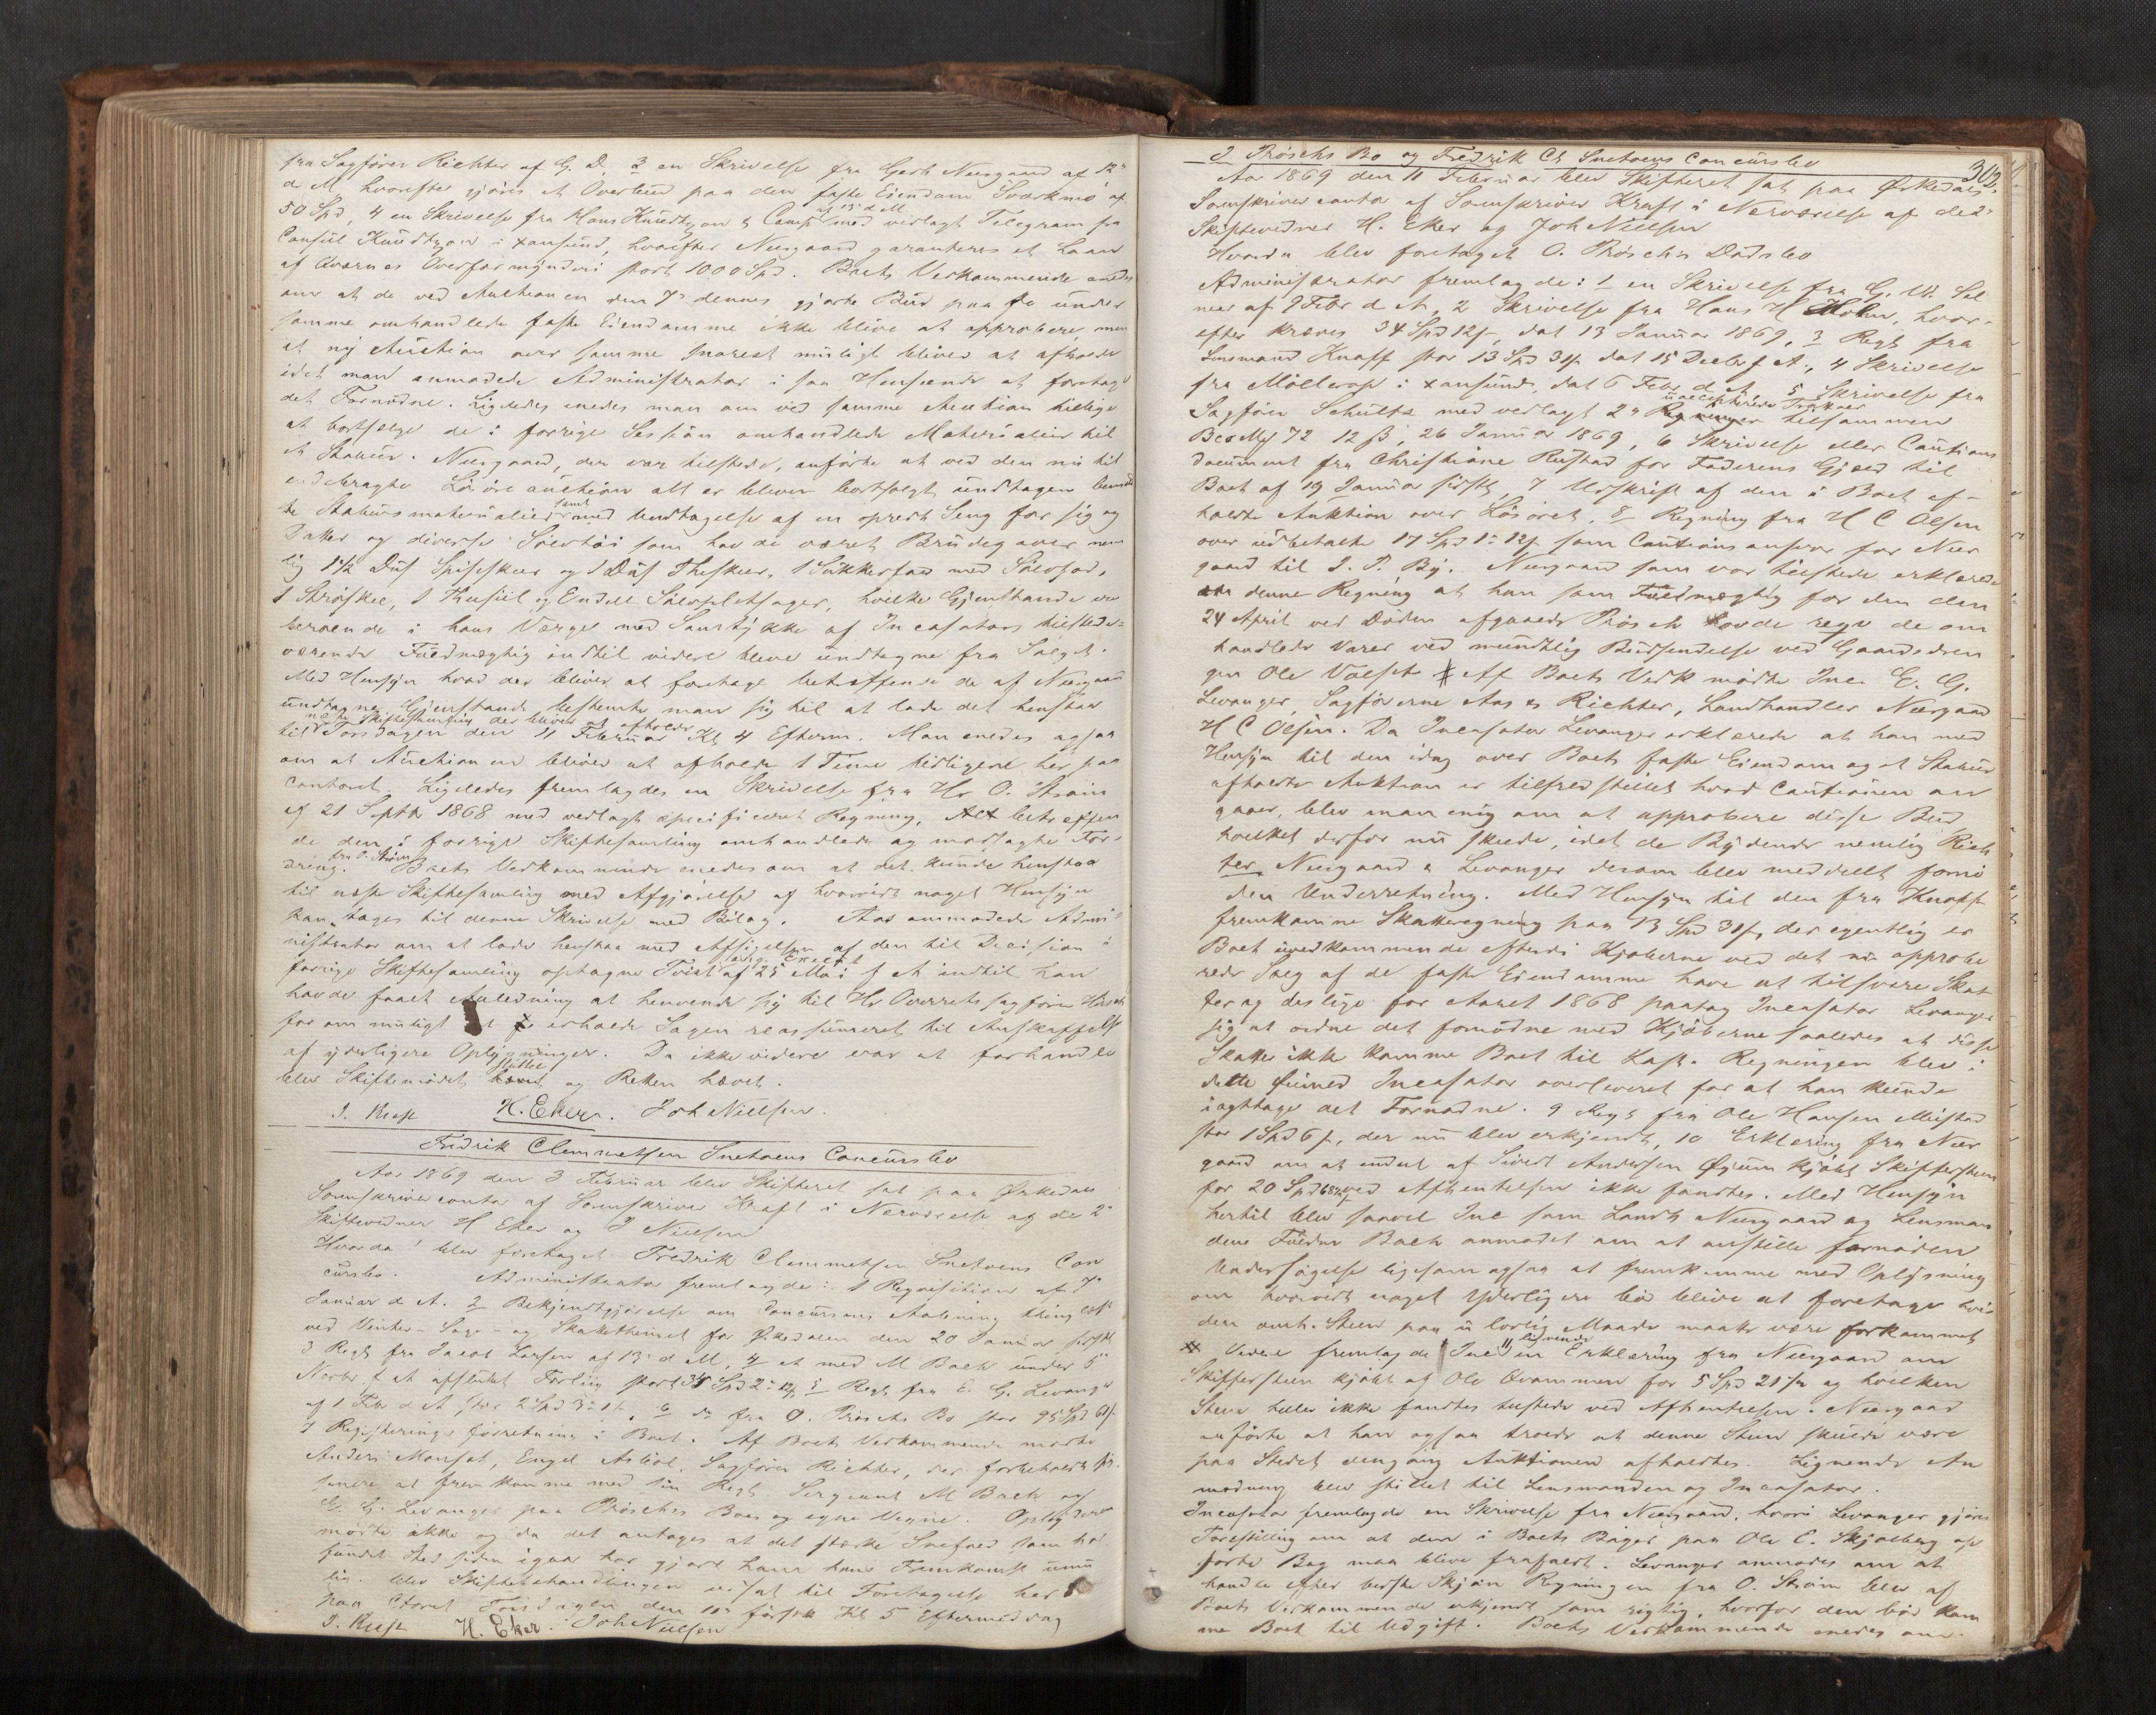 fra Sagfører Richter af G. D. 3 en Skrivelse fra Gerh Neergaard af 12te
d M. hvorefter gjøres et Overbud paa den faste Eiendom Svorkmo af
50 Spd, 4 en Skrivelse fra Hans Knudtzon & Comp af 13 d M med vedlagt Telegram fra
Consul Knudtzon i Xansund, hvorefter Neergaard garanteres et Laan
af Qværnes Overformynderi stort 1000 Spd. Boets Vedkommende enedes
om at de ved Auctionen den 7de dennes gjorte Bud paa de under
samme omhandlede faste Eiendomme ikke blive at approbere, men
at ny Auction over samme snarest muligt bliver at afholde
idet man anmodede Administrator i saa Henseende at foretage
det Fornødne. Ligeledes enedes man om ved samme Auction tillige
at bortsælge de i forrige Session omhandlede Materialier til
et Stabur. Neergaard, der var tilstede, anførte at ved den nu til
endebragte Løsøreauction alt er bleven bortsolgt undtagen bemeld
te Stabursmaterialier samt med Undtagelse af en opredt Seng for sig og
Datter og diverse Sølvtøi som havde været Brudegaver nem
lig 1 1/2 Dus Spiseskeer og 1 Dus Theskeer, 1 Sukkerfad med Sølvfod,
1 Strøskee, 1 Theesiil og Endeel Sølvpletsager, hvilke Gjenstande ere
beroende i hans Værge med Samtykke af Incasators tilstede-
værende Fuldmægtig indtil videre bleve undtagne fra Salget.
Med Hensyn hvad der bliver at foretage betræffende de af Neergaard
undtagne Gjenstande bestemte man sig til at lade det henstaa
til næste Skiftesamling der bliver at afholde Torsdagen den 11 Februar Kl 4 Efterm. Man enedes ogsaa
om at Auctionen bliver at afholde 1 Time tidligere her paa
Contoret. Ligeledes fremlagdes en Skrivelse fra Hr O. Strøm
af 21 Septbr 1868 med vedlagt specificeret Regning, Alt betræffen
de den i forrige Skiftesamling omhandlede og modtagte For-
dring fra O. Strøm. Boets Vedkommende enedes om at det kunde henstaa
til næste Skiftesamling med Afgjørelse af hvorvidt noget Hensyn
kan tages til denne Skrivelse med Bilag. Aas anmodede Admi-
nistrator om at lade henstaa med Afsigelsen af den til Decision i
forrige Skiftesamling optagne Tvist af 25 Mai f A indtil han
havde faaet Anledning at henvende sig til Hr Overretssagfører
for om muligt at erholde Sagen reassumeret til Anskaffelse
af yderligere Oplysninger. Da ikke videre var at forhandle
blev Skiftemødet sluttet og Retten hævet.
J. Kraft H. Eker. Joh Nielsen.
Fredrik Clemmetsen Snetoens Concursbo
Aar 1869 den 3 Februar blev Skifteret sat paa Ørkedals
Sorenskrivercontor af Sorenskriver Kraft i Nærværelse af de 2de
Skiftevidner H Eker og J Nielsen
Hvorda! blev foretaget Fredrik Clemmetsen Snetoens Con
cursbo. Administrator fremlagde: 1 Reqvisitionen af 7de
Januar d A. 2 Bekjendtgjørelse om Concursens Aabning thinglæst
ved Vinter- Sage- og Skattethinget for Ørkedalen den 20 Januar sidstl
3 Regts fra Jacob Larsen af 13 d M, 4 et med M Bach under 5te
Novbr f A afsluttet Forliig stort 34 Spd 2 # 12 s, 5 Regts fra E. G. Levanger
af 1 Febr d A stor 2 Spd, 6 do fra O. Prøsch's Bo stor 95 Spd
7 Registreringsforretning i Boet. Af Boets Vedkommende mødte
Anders Monset, Engel Asbøl, Sagfører Richter, der forbeholdt sig
senere at fremkomme med sin Regts, Sergeant M Bach og
E. G. Levanger paa Prøsch's Boes og egne Vegne. Opbyderen
mødte ikke og da det antages at det stærke Snefaed som har
fundet Sted siden igaar har gjort ham hans Fremkomst umu
lig blev Skiftebehandlingen udsat til Foretagelse her
paa Contoret Torsdagen den 11te førstk Kl 5 Eftermiddag
J. Kraft H. Eker. Joh Nielsen
O Prøschs Bo og Fredrik Cl Snetoens Concursbo
302.
Aar 1869 den 11 Februar blev Skifteret sat paa Ørkedals
Sorenskrivercontor af Sorenskriver Kraft i Nærværelse af de 2de
Skiftevidner H. Eker og Joh Nielsen
Hvorda blev foretaget O. Prøsch's Dødsbo
Administrator fremlagde: 1 en Skrivelse fra G. W. Sel
mer af 9 Febr d A, 2 Skrivelse fra Hans H Holm, hvor-
efter kræves 34 Spd 12 s, dat 13 Januar 1869, 3 Regts fra
Lensmand Knoff stor 13 Spd 31 s dat 15 Decbr f A., 4 Skrivelse
fra Møllerop i Xansund, dat 6 Febr d A, 5 Skrivelse fra
Sagfører Schultz med vedlagt 2de uaccepterede Tratter tilsammen
Bco Mk 72 12 ß, 26 Januar 1869, 6 Skrivelse eller Cautions
document fra Christiane Rustad for Faderens Gjæld til
Boet af 19 Januar sidstl, 7 Udskrift af den i Boet af-
holdte Auktion over Løsøret, 8 Regning fra H C Olsen
over udbetalte 17 Spd 1 # 12 s som Cautionsansvar for Neer
gaard til J. P. By. Neergaard som var tilstede erklærede
om denne Regning at han som Fuldmægtig for den den
24 April ved Døden afgaaede Prøsch havde reqv de om
handlede Varer ved mundtlig Budsendelse ved Gaardsdren
gen Ole Volset # Af Boets Vedk mødte Inc. E. G.
Levanger, Sagførerne Aas & Richter, Landhandler Neergaard
H C Olsen. Da Incasator Levanger erklærede at han med
Hensyn til den idag over Boets faste Eiendom og et Stabur
afholdte Auktion er tilfredsstillet hvad Cautionen an
gaaer, blev man enig om at approbere disse Bud
hvilket derfor nu skede, idet de Bydende nemlig Rich
ter, Neergaard & Levanger derom blev meddelt fornø
den Underretning. Med Hensyn til den fra Knoff
fremkomne Skatteregning paa 13 Spd 31 s, der egentlig er
Boet uvedkommende efterdi Kjøberne ved det nu approbe
rede Salg af de faste Eiendomme have at tilsvare Skat
ter og deslige for Aaret 1868 paatog Incasator Levanger
sig at ordne det fornødne med Kjøberne saaledes at disse
Skatter ikke komme Boet til Last. Regningen blev i
dette Øiemed Incasator overleveret for at han kunde
iagttage det Fornødne. 9 Regts fra Ole Hansen Mustad
stor 1 Spd 6 s, der nu blev erkjendt, 10 Erklæring fra Neer
gaard om at endeel af Sivert Andersen Øyum kjøbt Skiffersteen
for 20 Spd ved Afhentelsen ikke fandtes. Med Hensyn
hertil blev saavel Inc som Landh Neergaard og Lensman
dens Fuldm Bach anmodet om at anstille fornøden
Undersøgelse ligesom ogsaa at fremkomme med Oplysning
om hvorvidt noget yderligere bør blive at foretage hvis
den omh. Steen paa ulovlig Maade maatte være forkommet
# Videre fremlagde Inc 11 lignende en Erklæring fra Neergaard om
Skiffersteen kjøbt af Ole Qvammen for 5 Spd 21 s og hvilken
Steen heller ikke fandtes tilstede ved Afhentelsen. Neergaard
anførte at han ogsaa troede at denne Steen skulde være
paa Stedet dengang Auktionen afholdtes. Lignende An
modning blev stillet til Lensmanden og Incasator.
Incasator fremlagde en Skrivelse fra Neergaard, hvori Levanger gjøres
Forestilling om at den i Boets Bøger paa Ole C. Skjølberg op
førte Bog maa blive frafaldt. Levanger anmodes om at
handle efter bedste Skjøn Regningen fra O. Strøm blev af
Boets Vedkommende erkjendt som rigtig, hvorfor den bør kom
me Boet til Udgift. Boets Vedkommende enedes om